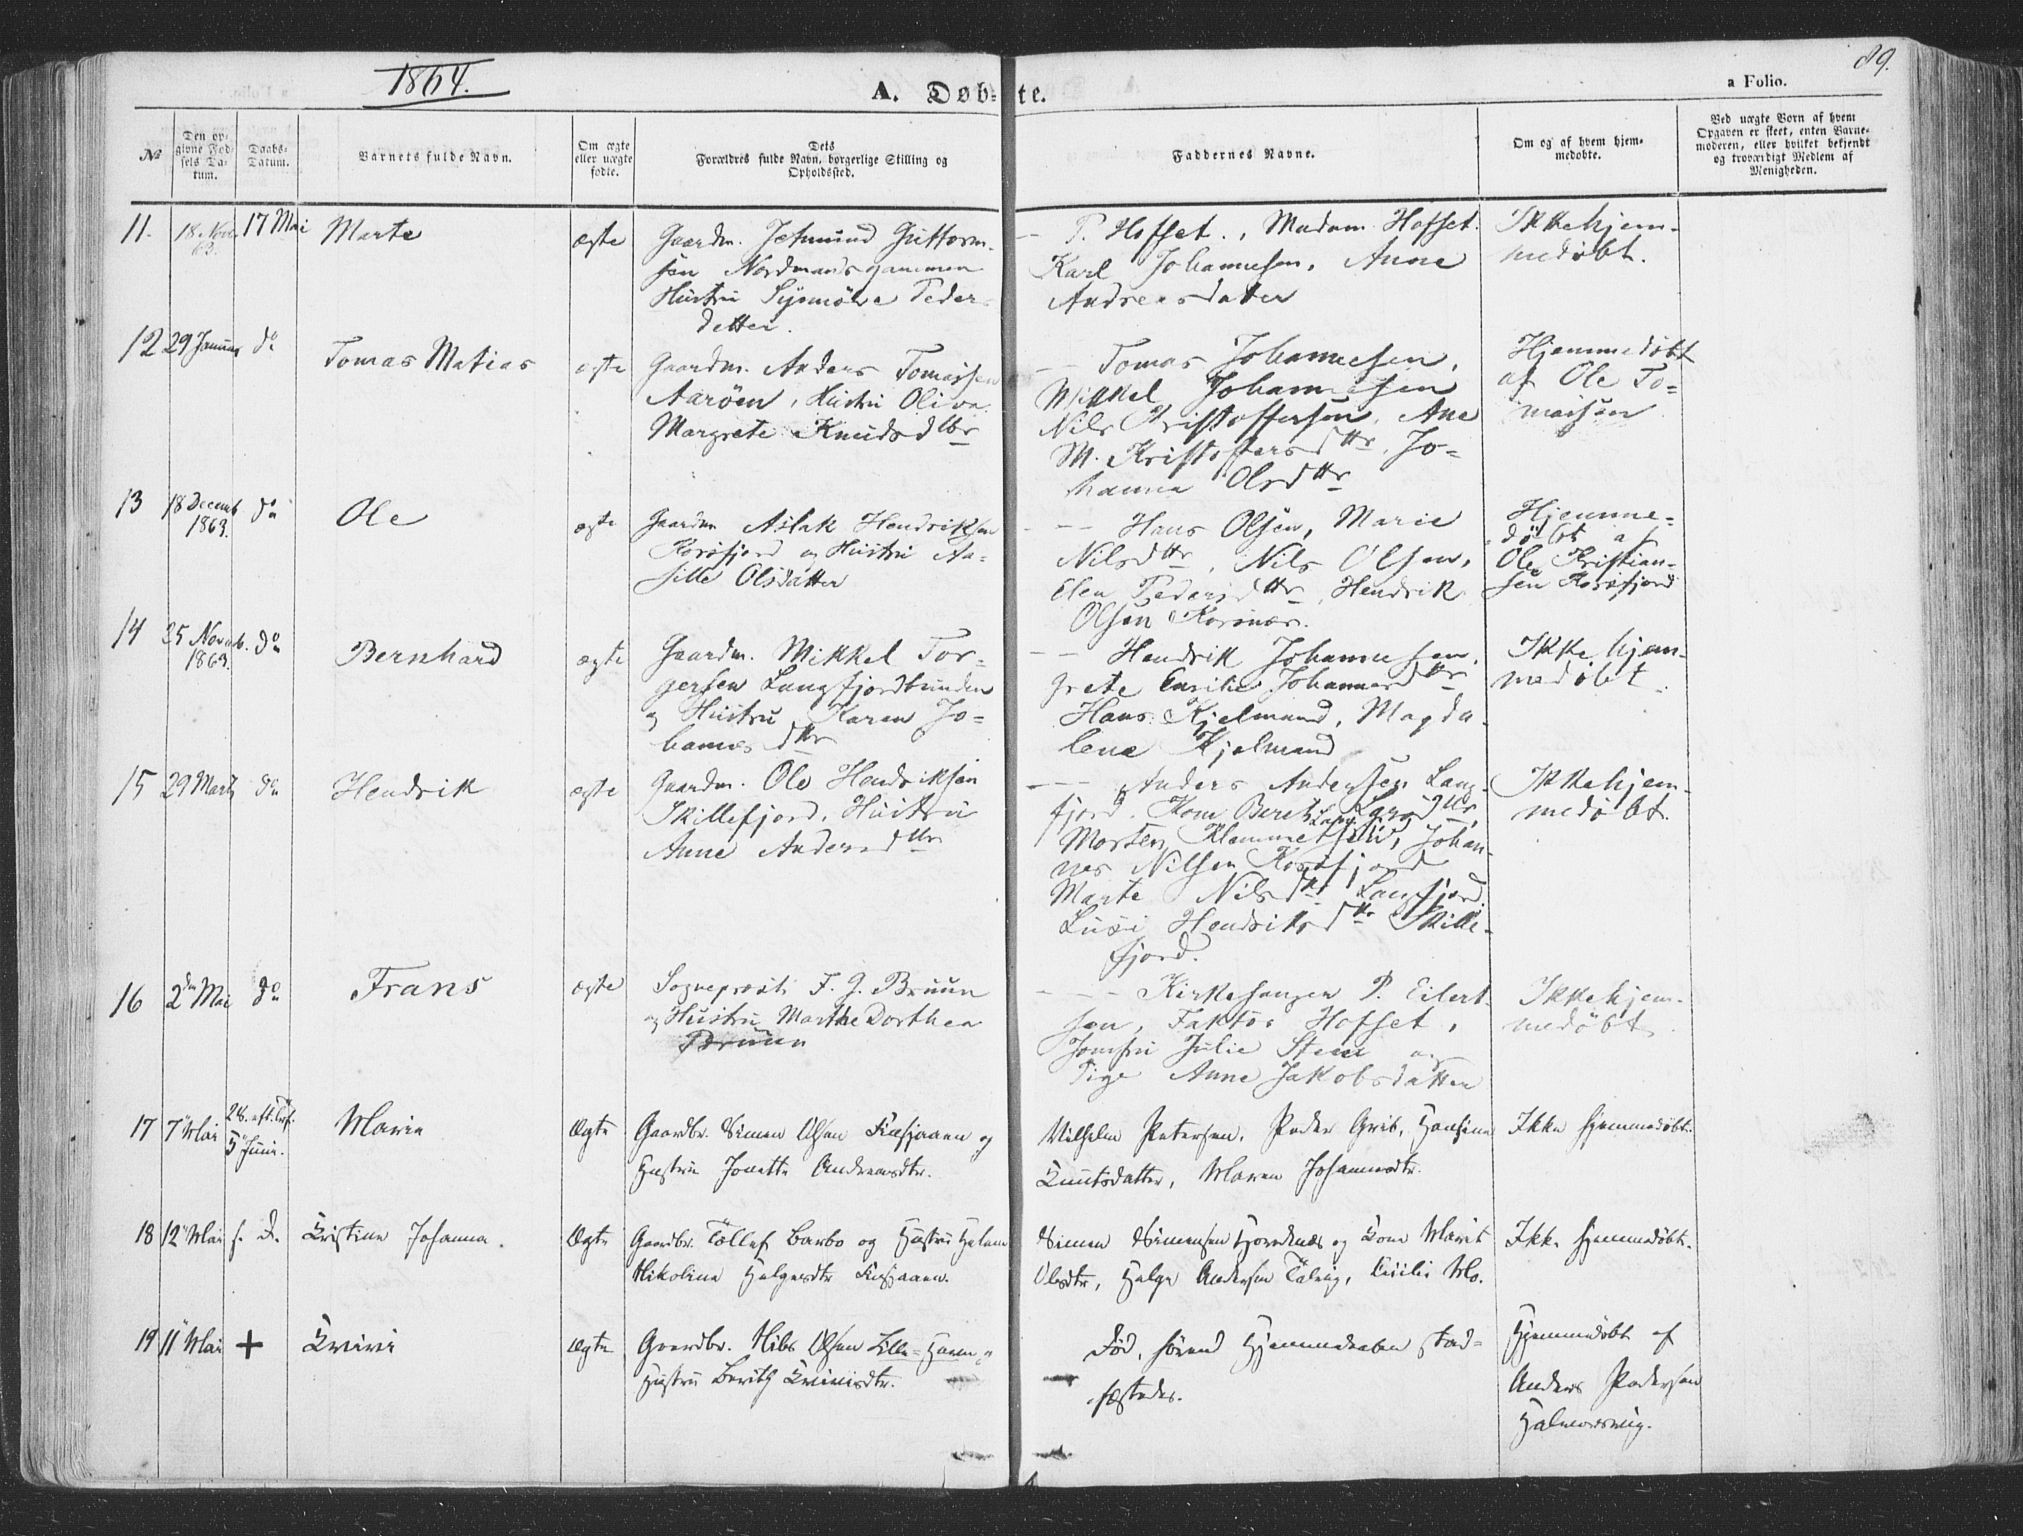 1864.
A. Døbte.
89.
a Folio.
№
Den opgivne Fødsels Datum.
Daabs-Datum.
Barnets fulde Navn.
Om ægte eller uægte fødte.
Dets Forældres fulde Navn, borgerlige Stilling og Opholdssted.
Faddernes Navne.
Om og af hvem hjemmedøbte.
Ved uægte Born af hvem Opgaven er skeet, enten Barnemoderen, eller hvilket bekjendt og troværdigt Medlem af Menigheden.
11. 18 Novb. 63. 17 Mai Marte ægte
Gaardm. Jetmund Guttorm-
sen Nordmandsgammen
Hustru Synnøve Peders
detter.
P. Hofset., Madam Hofset.
Karl Johannesen, Anne
Andreasdatter
Ikke hjem-
medøbt.
12 29 Januar do Tomas Matias ægte
Gaardm. Anders Tomassen
Aarøen, Hustru Oliva
Margrete Knudsdttr
Tomas Johannesen,
Mikkel Johannesen
Nils Kristoffersen, Ane
M. Kristoffersdttr, Jo-
hanna Olsdttr
Hjemmedøbt
af Ole To-
massen
13 18 Decemb 1863. do Ole ægte
Gaardm Aslak Hendriksen
Korsfjord og Hustru An-
sille Olsdatter
Hans Olsen, Marie
Nilsdttr, Nils Olsen,
Elen Pedersdttr, Hendrik
Olsen Korsnæs.
Hjemme-
døbt af
Ole Kristian-
sen Korsfjord
14 25 Novemb. 1863. do Bernhard ægte
Gaardm. Mikkel Tor-
gersen Langfjordbunden
og Hustru Karen Jo-
hannesdttr
Hendrik Johannesen,
Grete Emilie Johannesdttr
Hans Kjelmand, Magda-
lena Kjelmand
Ikke hjem-
medøbt.
15 29 Marts do Hendrik ægte
Gaardm. Ole Hendriksen
Skillefjord, Hustru
Anne Andersdttr
Anders Andersen Lang-
fjord, Kone Beret Larsdttr,
Morten Klemmetsen, Johan-
nes Nilsen Korsfjord
Marte Nilsdttr Langfjord
Lussi Hendriksdttr Skille-
fjord.
Ikke hjem-
medøbt.
16 2den Mai do Frans ægte
Sognepræst F. G. Bruun
og Hustru Marthe Dorthea
Bruun
Kirkesanger P. Eilert-
sen, Faktor Hofset,
Jomfru Julie Steen og
Pige Anne Jakobsdatter
Ikke hjem-
medøbt
17 7 Mai 2 S. eft. Tref. 5 Juni. Marie Ægte
Gaardbr. Simen Olsen Kaasjaaen og
Hustru Jonette Andreasdtr.
Vilhelm Petersen, Peder Grib, Hansine
Knutsdatter, Maren Johannesdtr.
Ikke hjemmedøbt.
18 12 Mai s. D. Kristine Johanna. Ægte
Gaardbr. Tollef Barbo og Hustru Helene
Nikoline Helgesdtr Kaasjaaen.
Simen Simensen Hjordenæs og Kone Marit
Olsdtr, Helge Andersen Talvig, Cecilie Mo.
Ikke hjemmedøbt.
19 11 Mai + Kriwi Ægte
Gaardbr. Nils Olsen Lille-Havn og
Hustru Berith Kriwisdtr.
Død, førend Hjemmedaaben stad-
fæstedes.
Hjemmedøbt af
Anders Pedersen
Halvorsvig.